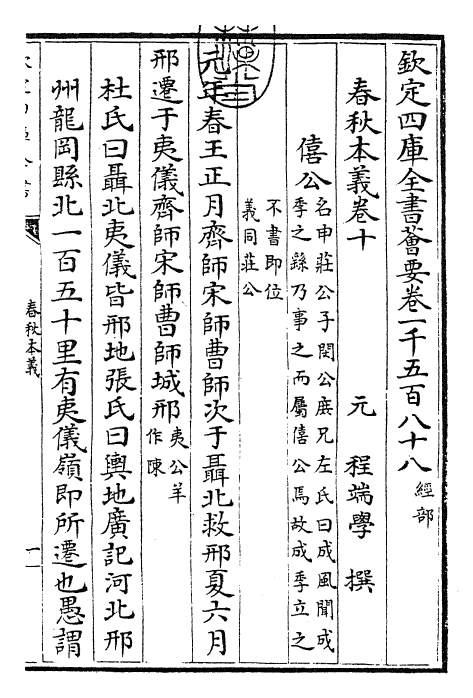 欽定四庫全書薈要卷一千五百八十八 經部
春秋本義卷十 元 程端學 撰
僖公 名申莊公子閔公庶兄左氏曰成風聞成
季之繇乃事之而屬僖公焉故成季立之
元年春王正月 不書即位
義同莊公
齊師宋師曹師次于聶北救邢夏六月
邢遷于夷儀齊師宋師曹師城邢 夷公羊
作陳
杜氏曰聶北夷儀皆邢地張氏曰輿地廣記河北邢
州龍岡縣北一百五十里有夷儀嶺即所遷也愚謂
春秋本義
一